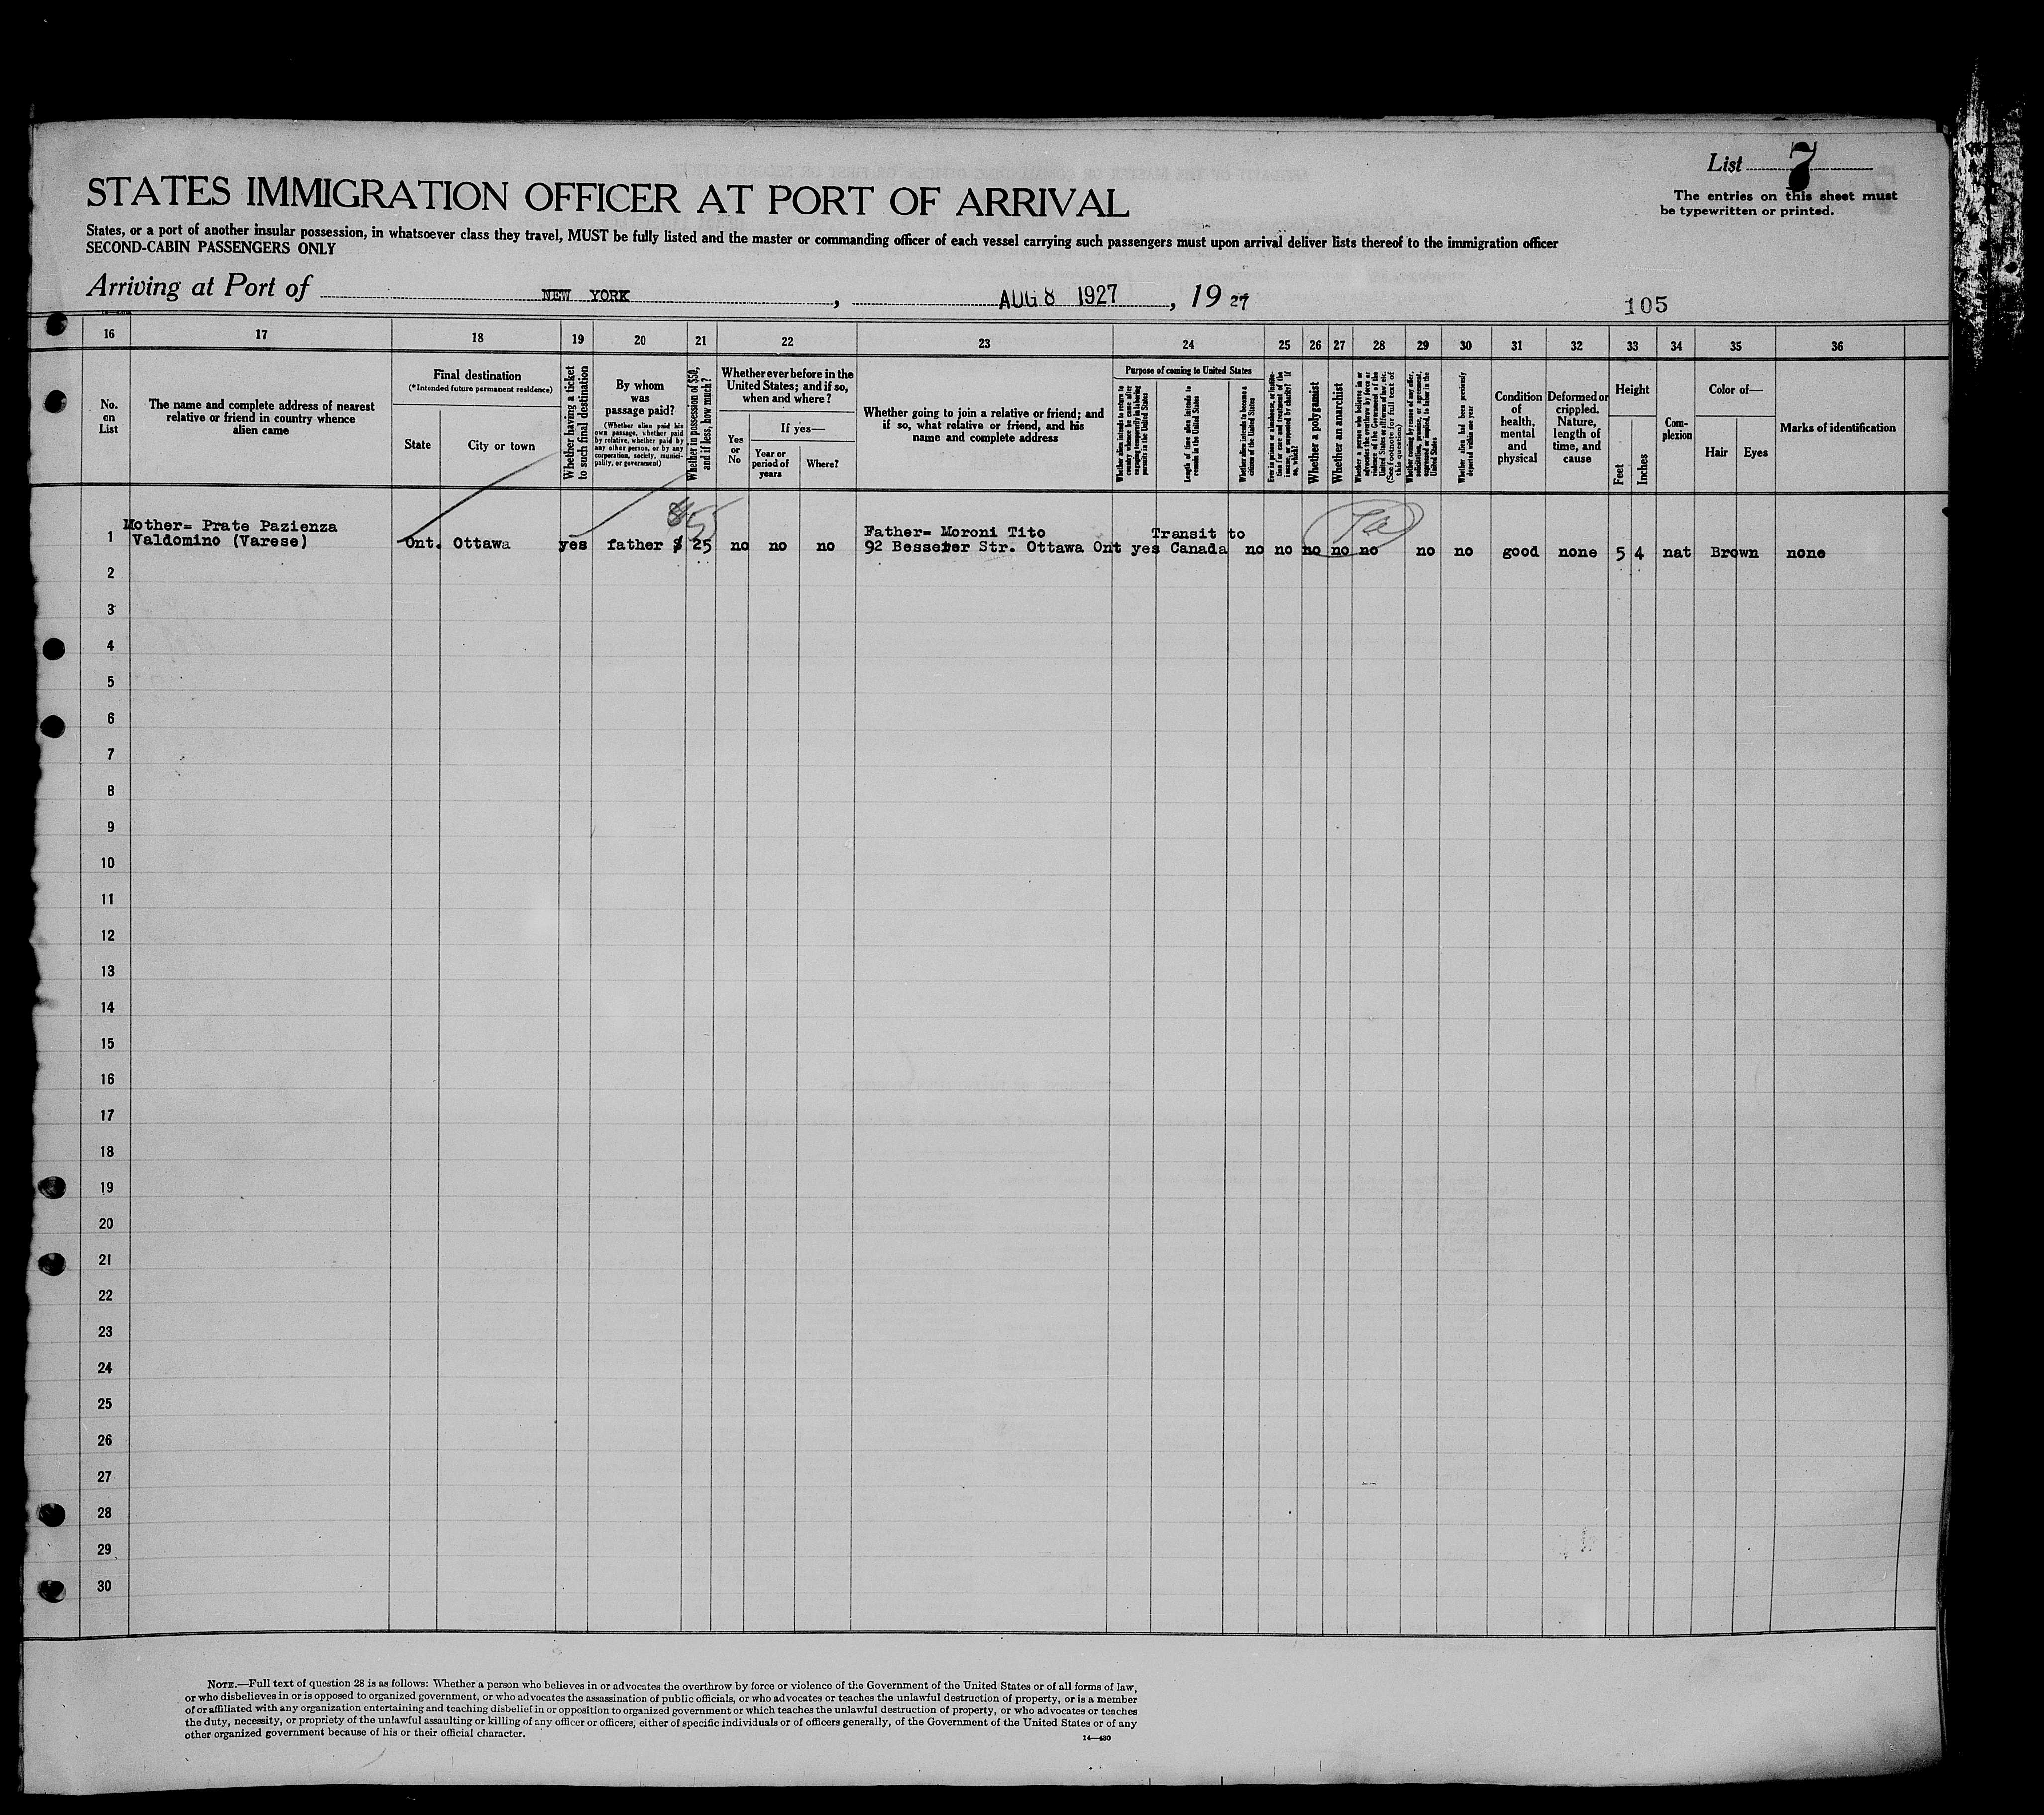 List 7
The entries on this sheet must
be typewritten or printed.
STATES IMMIGRATION OFFICER AT PORT OF ARRIVAL
States, or a port of another insular possession, in whatsoever class they travel, MUST be fully listed and the master or commanding officer of each vessel carrying such passengers must upon arrival deliver lists thereof to the immigration officer
SECOND-CABIN PASSENGERS ONLY
Arriving at Port of NEW YORK, AUG 8 1927, 19 27
105
16 17 18 19 20 21 22 23 24 25 26 27 28 29 30 31 32 33 34 35 36
No.
on
List
The name and complete address of nearest
relative or friend in country whence
alien came
Final destination
(*Intended future permanent residence)
State
City or town
Whether having a ticket
to such final destination
By whom
was
passage paid?
(Whether alien paid his
own passage, whether paid
by relative, whether paid by
any other person, or by any
corporation, society, munici-
pality, or government)
Whether in possession of $50,
and if less, how much?
Whether ever before in the
United States; and if so,
when and where?
Yes
or
No
If yes—
Year or
period of
years
Where?
Whether going to join a relative or friend; and
if so, what relative or friend, and his
name and complete address
Purpose of coming to United States
Whether alien intends to return to
country whence he came after
engaging temporarily in laboring
pursuits in the United States
Length of time alien intends to
remain in the United States
Whether alien intends to become a
citizen of the United States
Ever in prison or almshouse, or institu-
tion for care and treatment of the
insane, or supported by charity? If
so, which?
Whether a polygamist
Whether an anarchist
Whether a person who believes in or
advocates the overthrow by force or
violence of the Government of the
United States or all forms of law, etc.
(See footnote for full text of
this question)
Whether coming by reason of any offer,
solicitation, promise, or agreement,
expressed or implied, to labor in the
United States
Whether alien had been previously
deported within one year
Condition
of
health,
mental
and
physical
Deformed or
crippled.
Nature,
length of
time, and
cause
Height
Feet
Inches
Com-
plexion
Color of—
Hair
Eyes
Marks of identification
Mother= Prate Pazienza Father= Moroni Tito Transit to
1 Valdomino (Varese) Ont. Ottawa yes father $ 25 no no no 92 Besseter Str. Ottawa Ont yes Canada no no no no no no no good none 5 4 nat Brown none
$55
2
3
4
5
6
7
8
9
10
11
12
13
14
15
16
17
18
19
20
21
22
23
24
25
26
27
28
29
30
NOTE.—Full text of question 28 is as follows: Whether a person who believes in or advocates the overthrow by force or violence of the Government of the United States or of all forms of law,
or who disbelieves in or is opposed to organized government, or who advocates the assassination of public officials, or who advocates or teaches the unlawful destruction of property, or is a member
of or affiliated with any organization entertaining and teaching disbelief in or opposition to organized government or which teaches the unlawful destruction of property, or who advocates or teaches
the duty, necessity, or propriety of the unlawful assaulting or killing of any officer or officers, either of specific individuals or of officers generally, of the Government of the United States or of any
other organized government because of his or their official character.
14—430